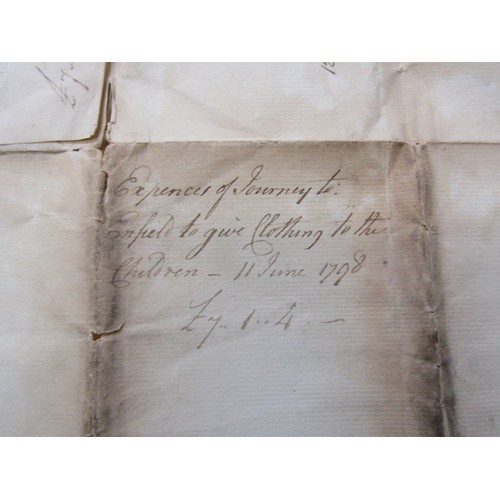 Expences of Journey to:
Enfield to give Clothing to the
Children – 11 June 1798
£7.. 1.. 4. —